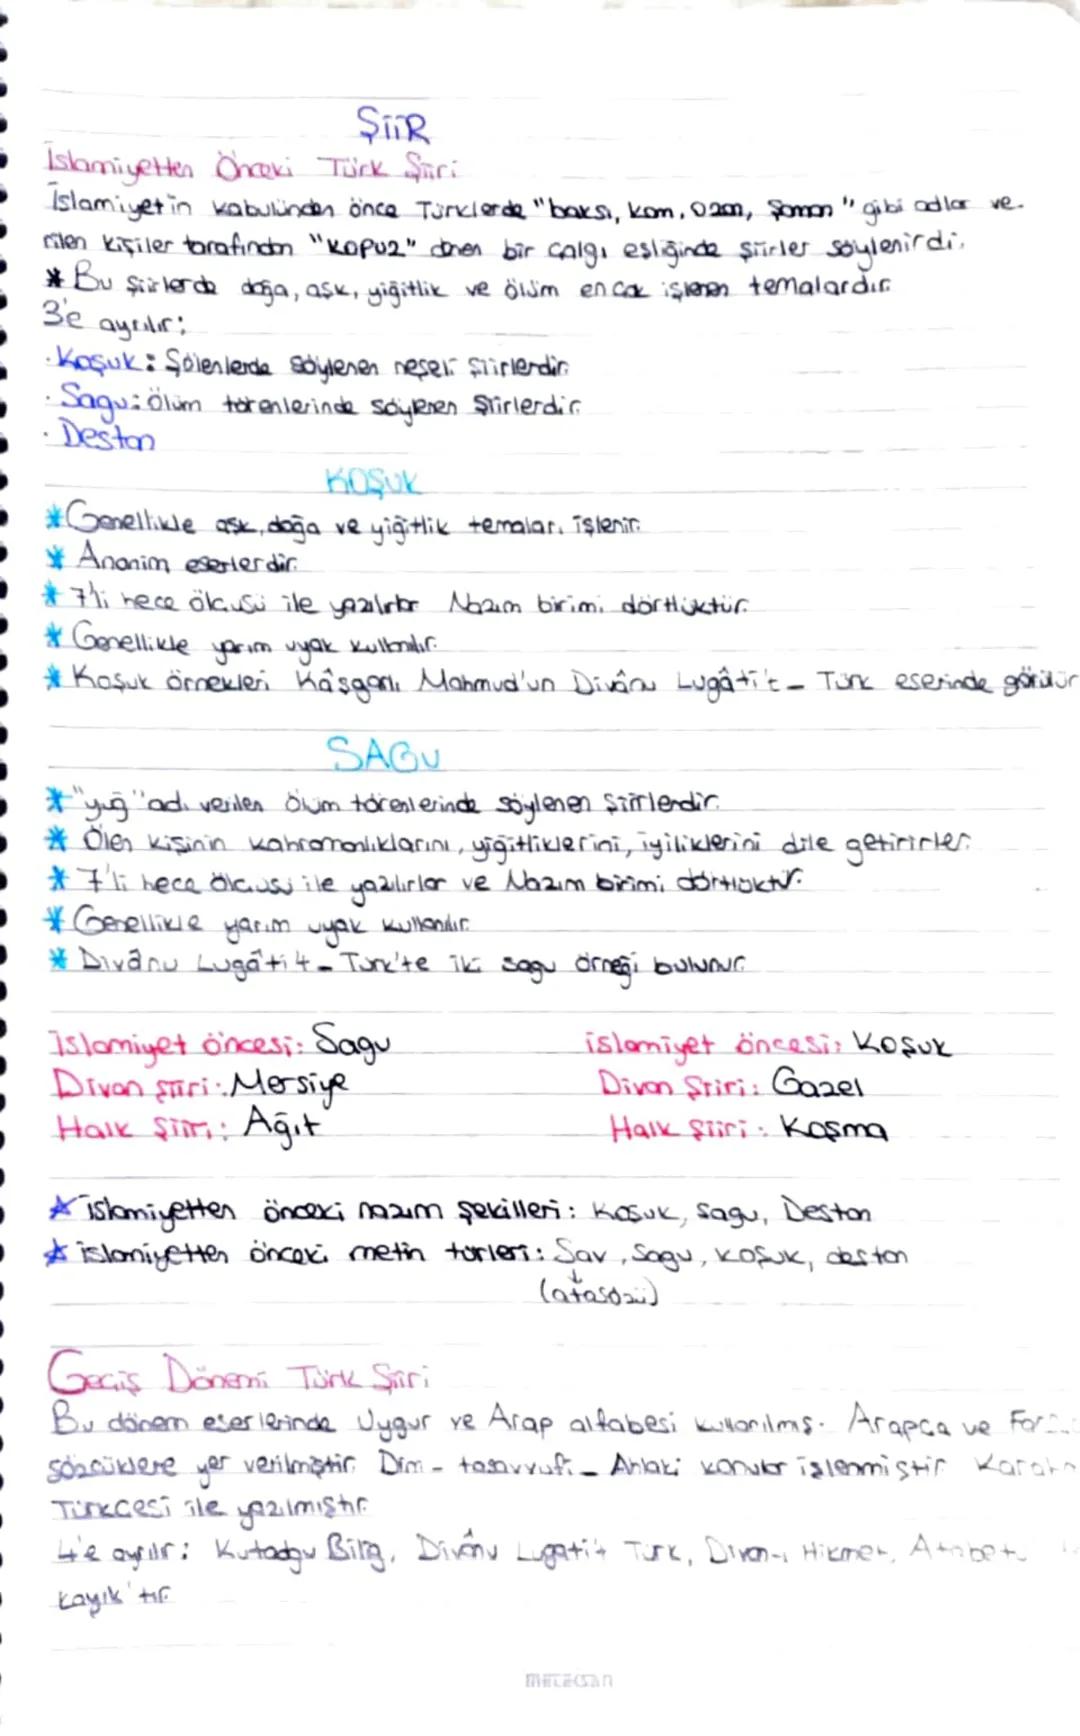 ŞİİR
İslamiyetten Önceki Türk Şiiri
İslamiyetin kabulünden önce Türklerde "baksı, kam, ozan, şaman" gibi adlar ve-
rilen kişiler tarafından "KOPUZ" denen bir çalgı eşliğinde şiirler söylenirdi.
* Bu şiirlerde doğa, aşk, yiğitlik ve ölüm en çok işlenen temalardır.
3'e ayrılır:
· Koşuk: Şölenlerde söylenen neşeli şiirlerdir.
· Sagu: Ölüm törenlerinde söylenen şiirlerdir.
· Destan
KOŞUK
* Genellikle aşk, doğa ve yiğitlik temaları işlenir.
* Anonim eserlerdir.
* 7'li hece ölçüsü ile yazılırlar Nazım birimi dörtlüktür.
* Genellikle yarım uyak kullanılır.
* Koşuk örnekleri Kâşgarlı Mahmud'un Divânu Lugâti't - Türk eserinde görülür
SAGU
* "yuğ" adı verilen ölüm törenlerinde söylenen şiirlerdir.
* Ölen kişinin kahramanlıklarını, yiğitliklerini, iyiliklerini dile getirirler.
* 7'li hece ölçüsü ile yazılırlar ve Nazım birimi dörtlüktür.
* Genellikle yarım uyak kullanılır.
* Divânu Lugâti't - Türk'te iki sagu örneği bulunur.
İslamiyet öncesi: Sagu İslamiyet öncesi: Koşuk
Divan şiiri: Mersiye Divan Şiiri: Gazel
Halk Şiiri: Ağıt Halk Şiiri: Koşma
☆ İslamiyetten önceki nazım şekilleri: Koşuk, Sagu, Destan
☆ İslamiyetten önceki metin türleri: Sav, Sagu, koşuk, destan
(atasözü)
Geçiş Dönemi Türk Şiiri
Bu dönem eserlerinde Uygur ve Arap alfabesi kullanılmış. Arapça ve
sözcüklere yer verilmiştir. Dini - tasavvufi - Ahlaki konular işlenmiştir.
Türkçesi ile yazılmıştır.
4'e ayrılır: Kutadgu Bilig, Divânu Lugati't Türk, Divan-ı Hikmet, Atabetü
kayık'tır.
meteksan